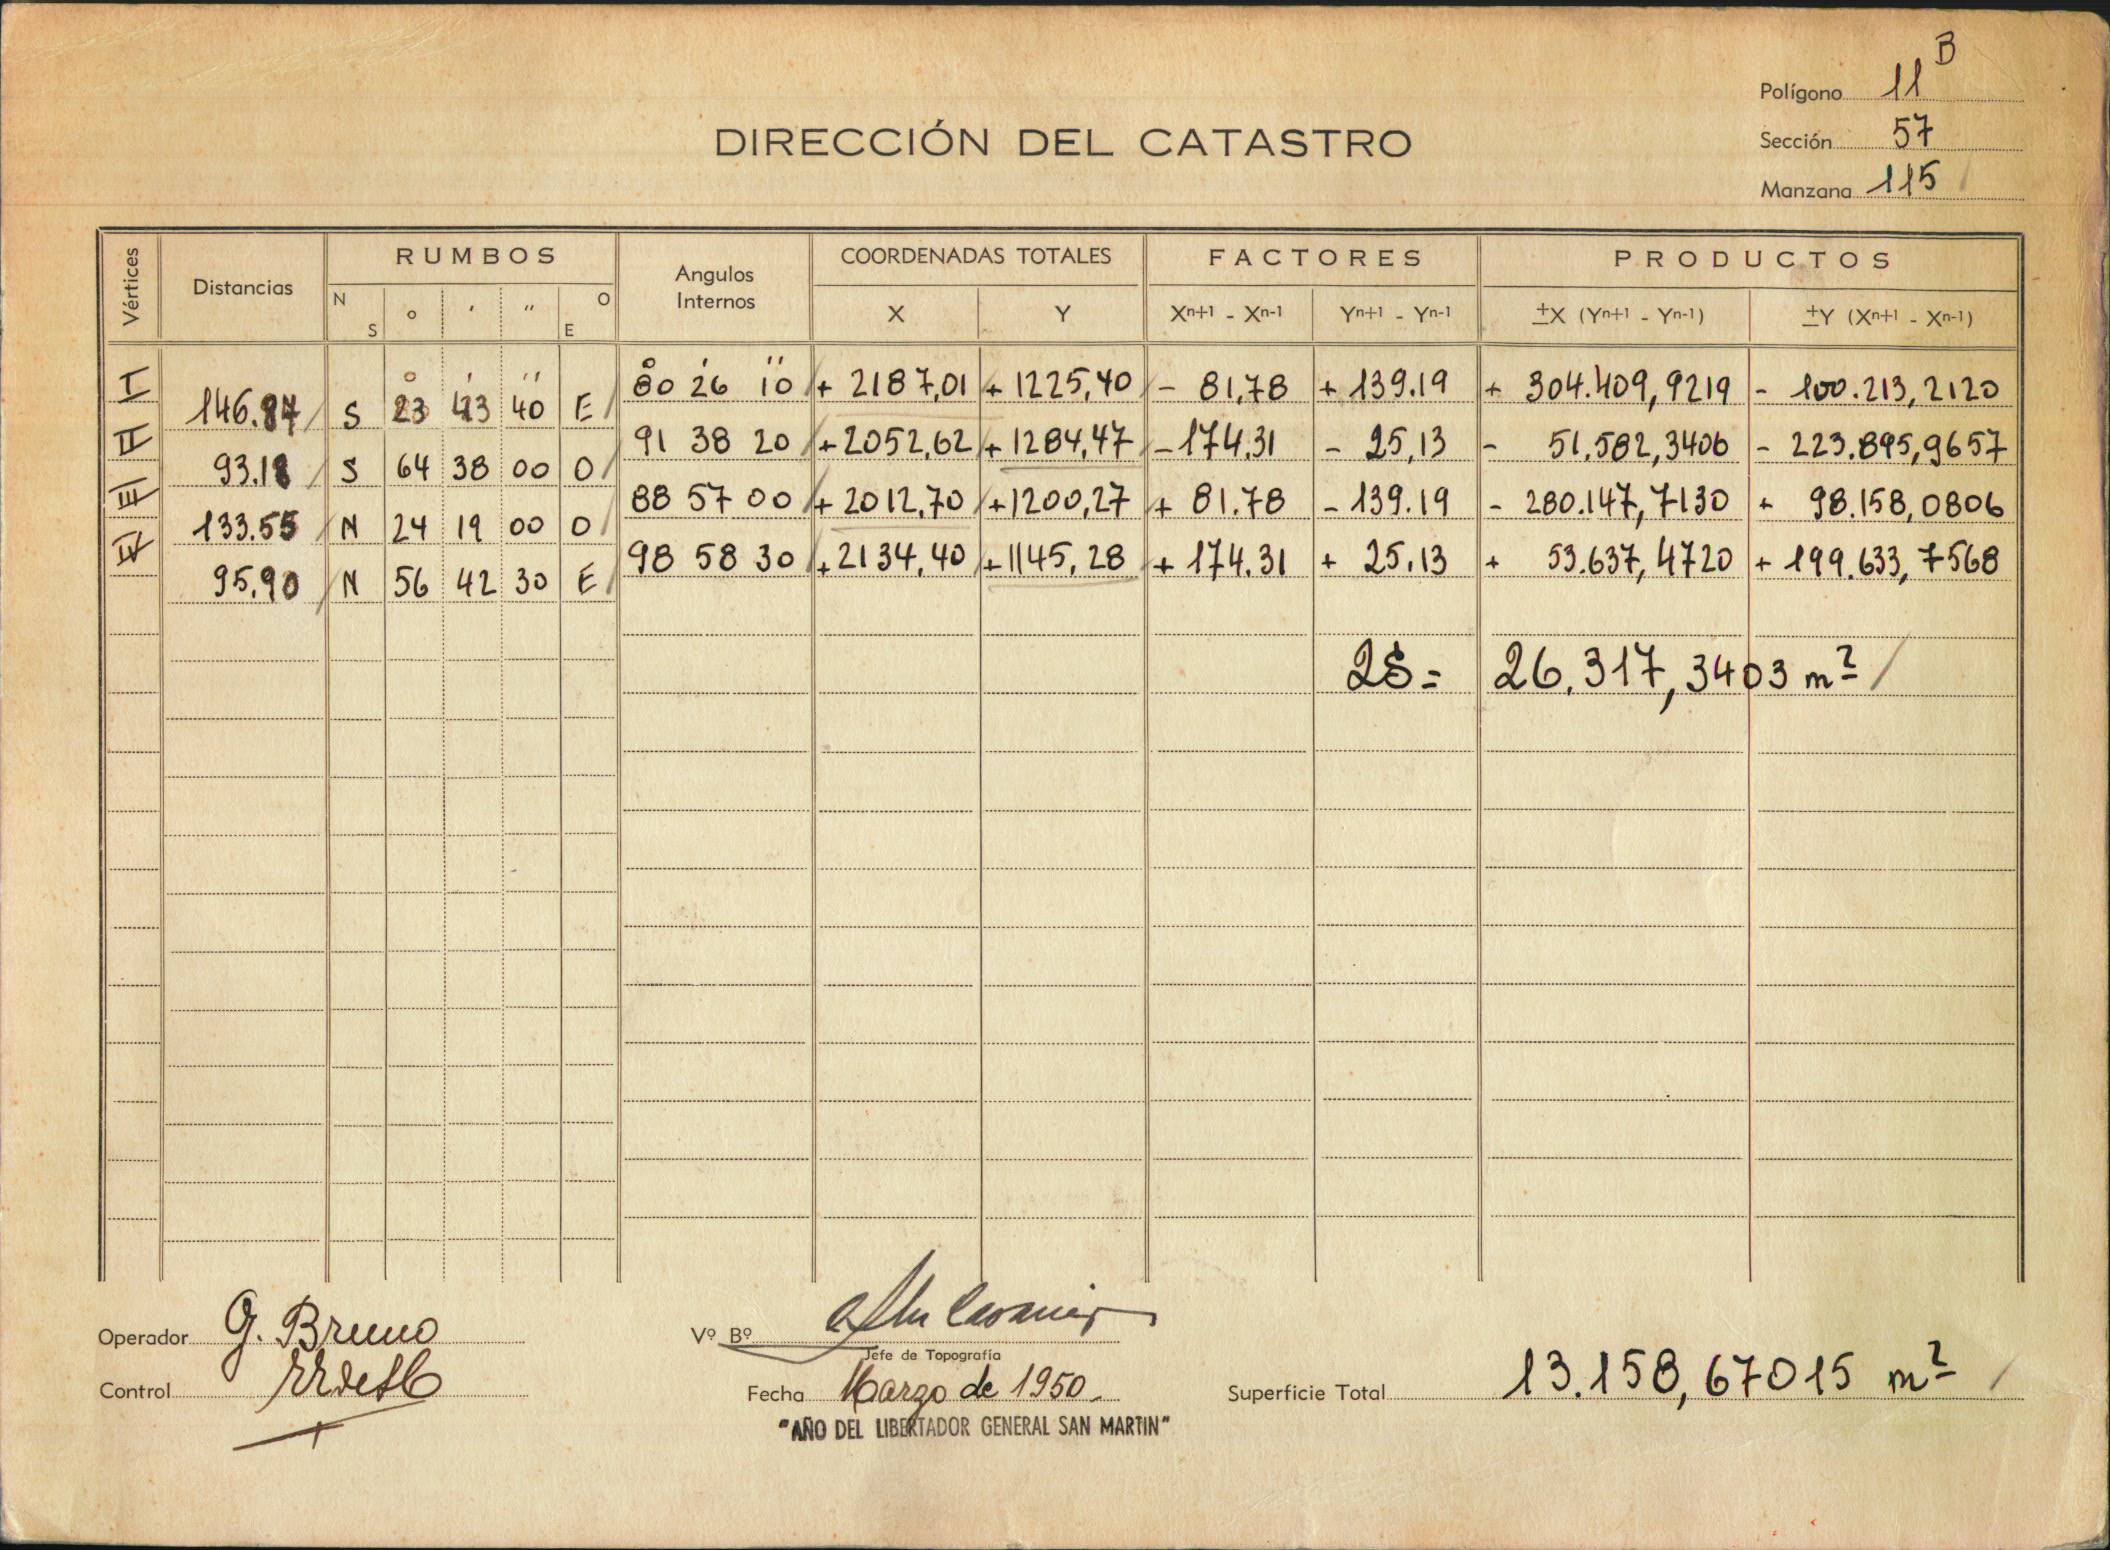 Polígono 11 B
DIRECCIÓN DEL CATASTRO
Sección 57
Manzana 115
Vértices Distancias RUMBOS Angulos Internos COORDENADAS TOTALES FACTORES PRODUCTOS
N S ° ' '' O E X Y Xn+1 - Xn-1 Yn+1 - Yn-1 ±X (Yn+1 - Yn-1) ±Y (Xn+1 - Xn-1)
I 80° 26' 10'' + 2187,01 + 1225,40 - 81,78 + 139.19 + 304.409,9219 - 100.213,2120
146.87 S 23° 43' 40'' E
II 91 38 20 + 2052,62 + 1284,47 - 174.31 - 25,13 - 51.582,3406 - 223.895,9657
93.18 S 64 38 00 O
III 88 57 00 + 2012,70 + 1200,27 + 81.78 - 139.19 - 280.147,7130 + 98.158,0806
133.55 N 24 19 00 O
IV 98 58 30 + 2134,40 + 1145,28 + 174.31 + 25.13 + 53.637,4720 + 199.633,7568
95.90 N 56 42 30 E
2S = 26.317,3403 m²
Operador G. Bruno
Vº Bº
Jefe de Topografía
Control
Fecha Marzo de 1950.
Superficie Total 13.158,67015 m²
"AÑO DEL LIBERTADOR GENERAL SAN MARTIN"